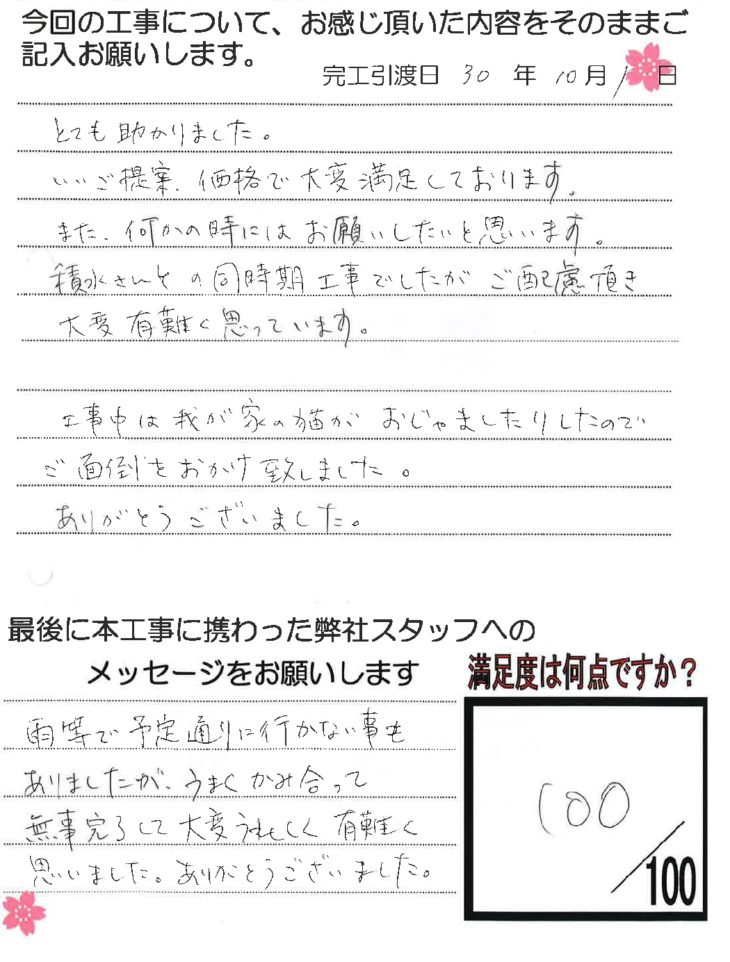 今回の工事について、お感じ頂いた内容をそのままご
記入お願いします。
完工引渡日 30 年 10月 1 日
とても助かりました。
いいご提案、価格で大変満足しております。
また、何かの時にはお願いしたいと思います。
積水さんとの同時期工事でしたがご配慮頂き
大変有難く思っています。
工事中は我が家の猫がおじゃましたりしたので
ご面倒をおかけ致しました。
ありがとうございました。
最後に本工事に携わった弊社スタッフへの
メッセージをお願いします
雨等で予定通りに行かない事も
ありましたが、うまくかみ合って
無事完了して大変うれしく有難く
思いました。ありがとうございました。
満足度は何点ですか？
100
/100